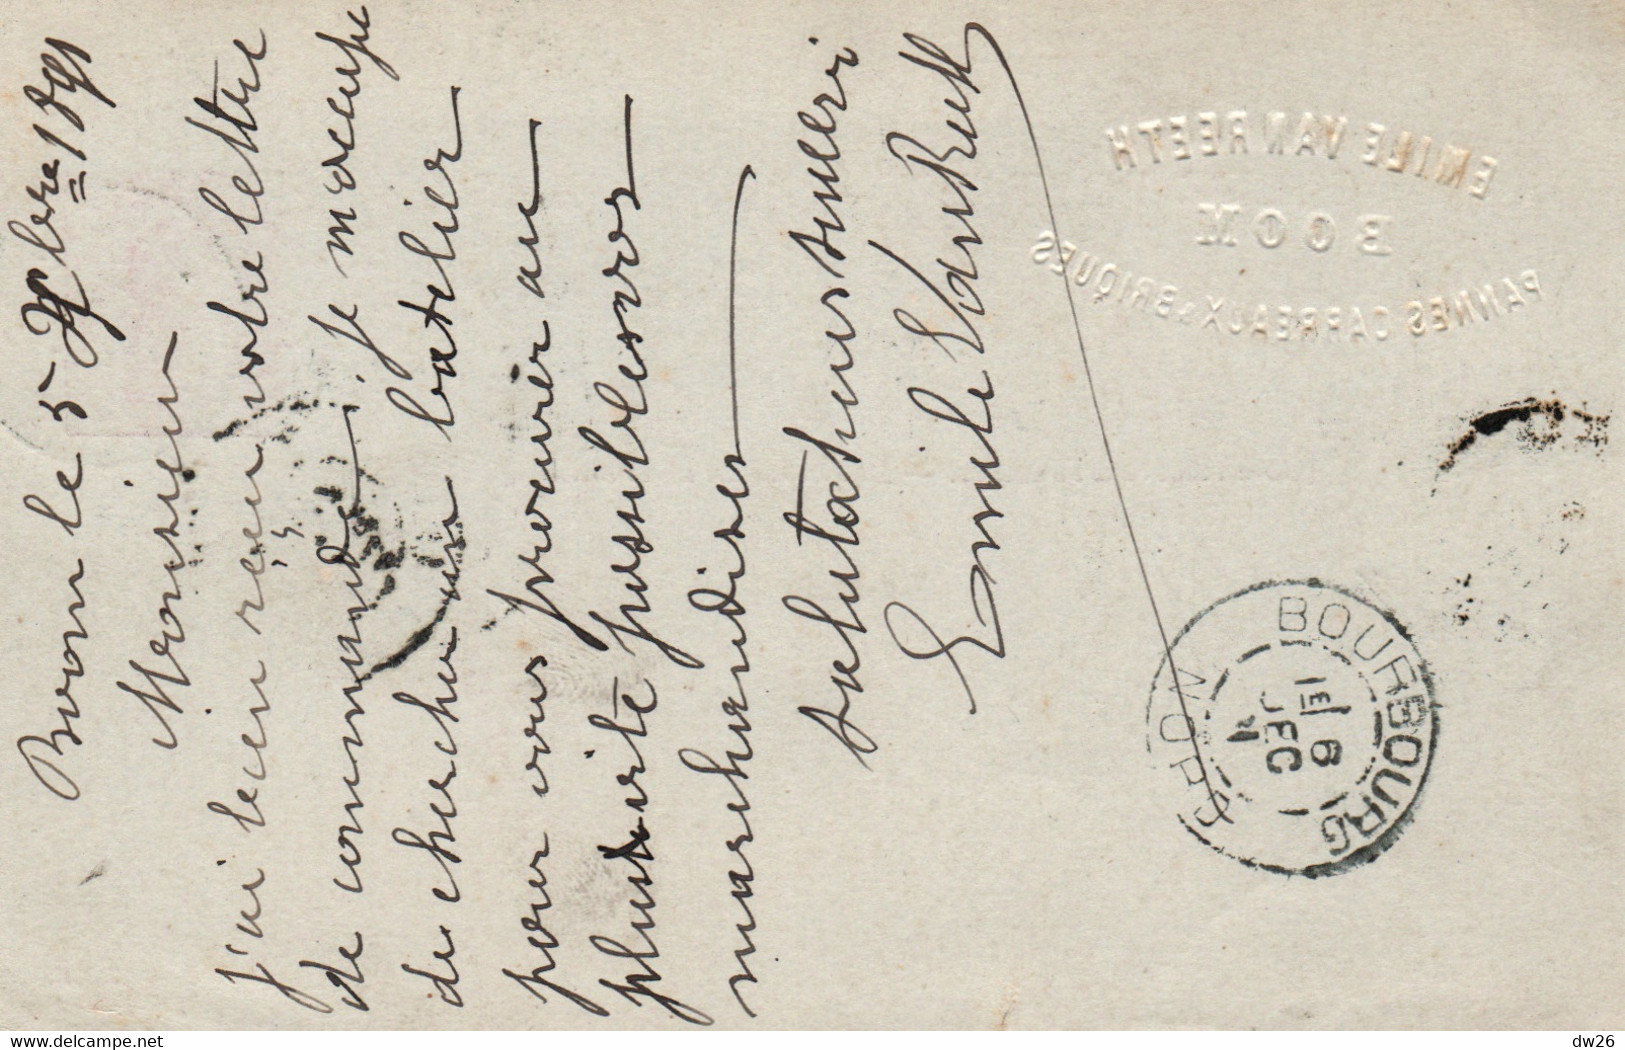 Boom le 5 Xbre 1891
Monsieur
J'ai bien reçu votre lettre
de commande, je m'occupe
de chercher un batelier
pour vous procurer au
plus vite possible vos
marchandises
salutations sincères
Emile Van Reeth
EMILE VAN REETH
BOOM
PANNES CARREAUX & BRIQUES
BOURBOURG
1E
6
DEC
NORD
delcampe.net
dw26